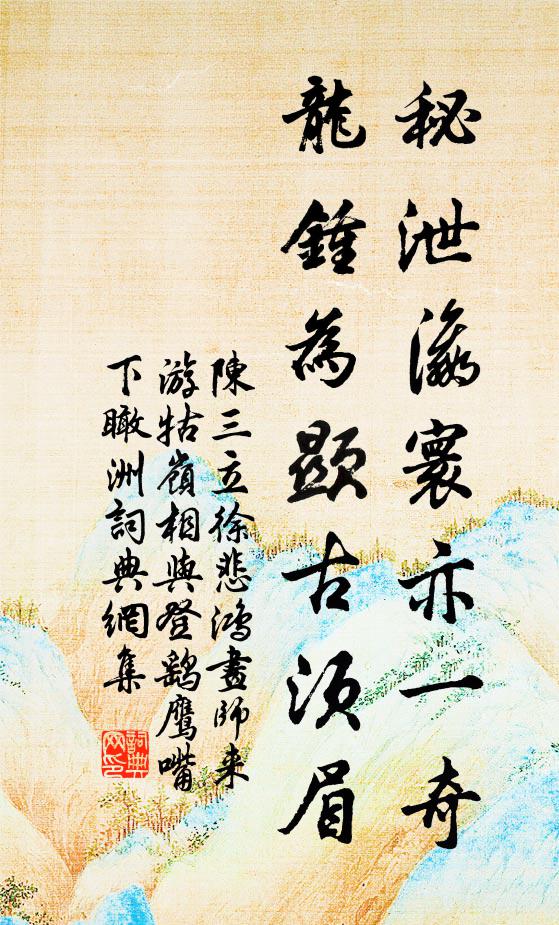 秘泄瀛寰亦一奇
龍鍾為顯古須眉
陳三立徐悲鴻畫師来
游牯嶺相與登鷂鷹嘴
下瞰洲詞典網集
詞典
网印